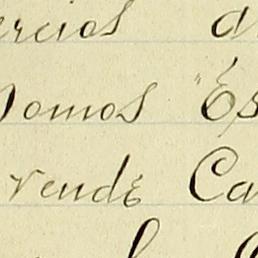 ercios a
omos "Es
vende Ca